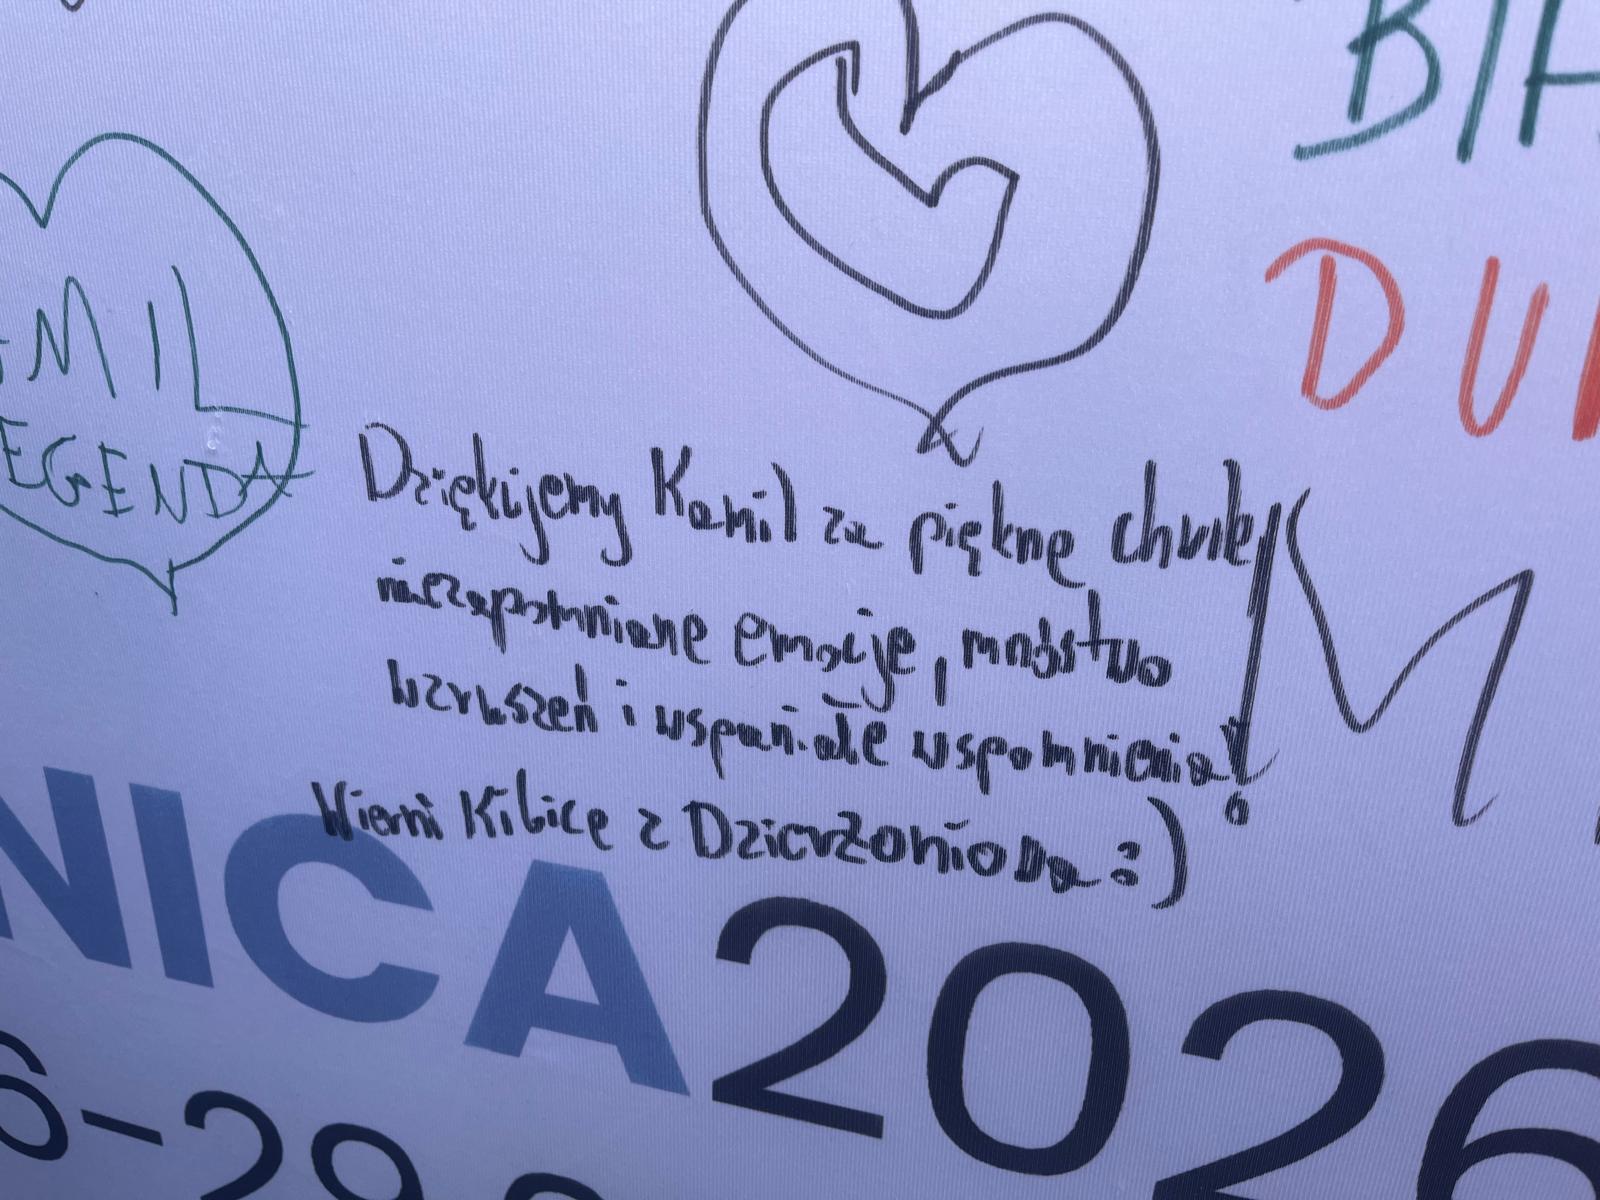 BIA
DU
MIL
EGENDA
Dziękujemy Kamil za piękne chwile,
niezapomniane emocje, mnóstwo
wzruszeń i wspaniałe wspomnienia!
Wierni Kibice z Dzierżoniowa :)
M
NICA2026
6-29